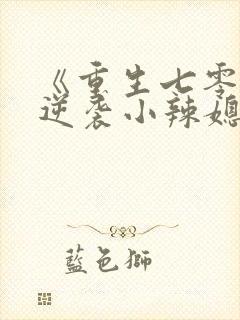 《重生七零
逆袭小辣媳
藍色獅